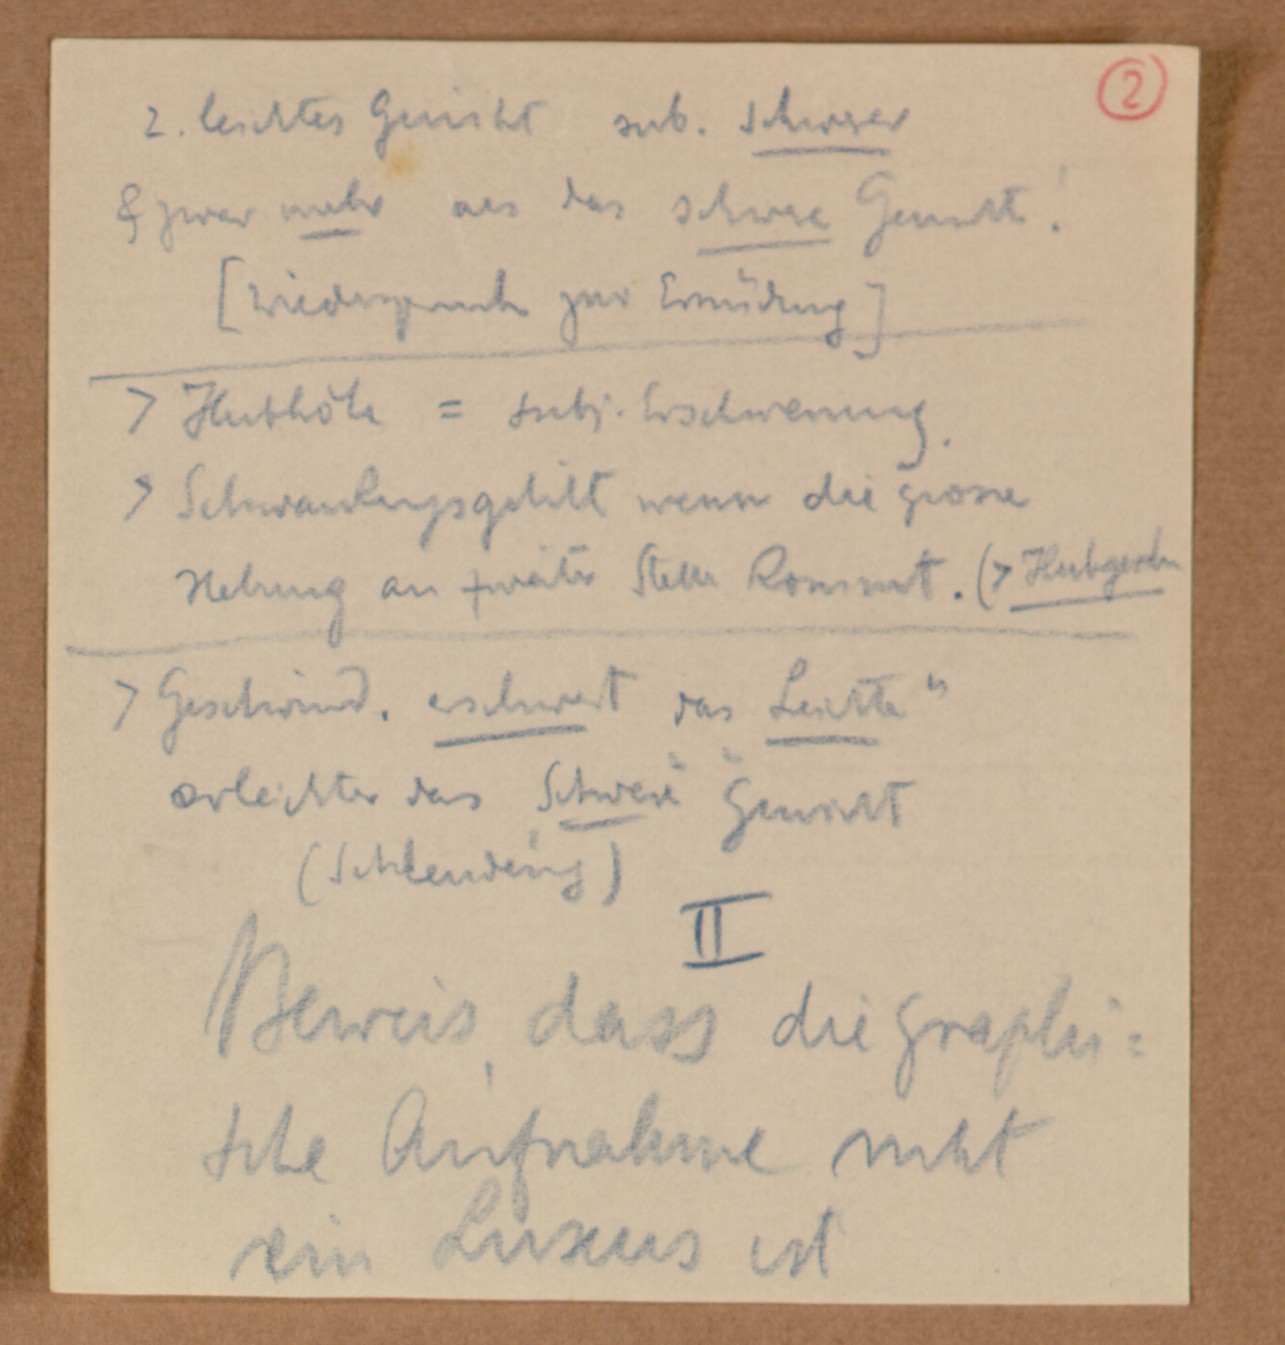 2
2. leichtes Gewicht sub. schwerer
& zwar mehr als das schwere Gewicht!
[Wiederspruch zur Ermüdung]
> Hubhöhe = subj. Erschwerung.
> Schwankungsgebiet wenn die grosse
Hebung an zweiter Stelle kommt. (> Hubgeschw
> Geschwind. erschwert das Leichte "
erleichter das Schwere " Gewicht
(Schleudering)
II
Beweis, dass die graphi=
sche Aufnahme nicht
ein Luxus ist